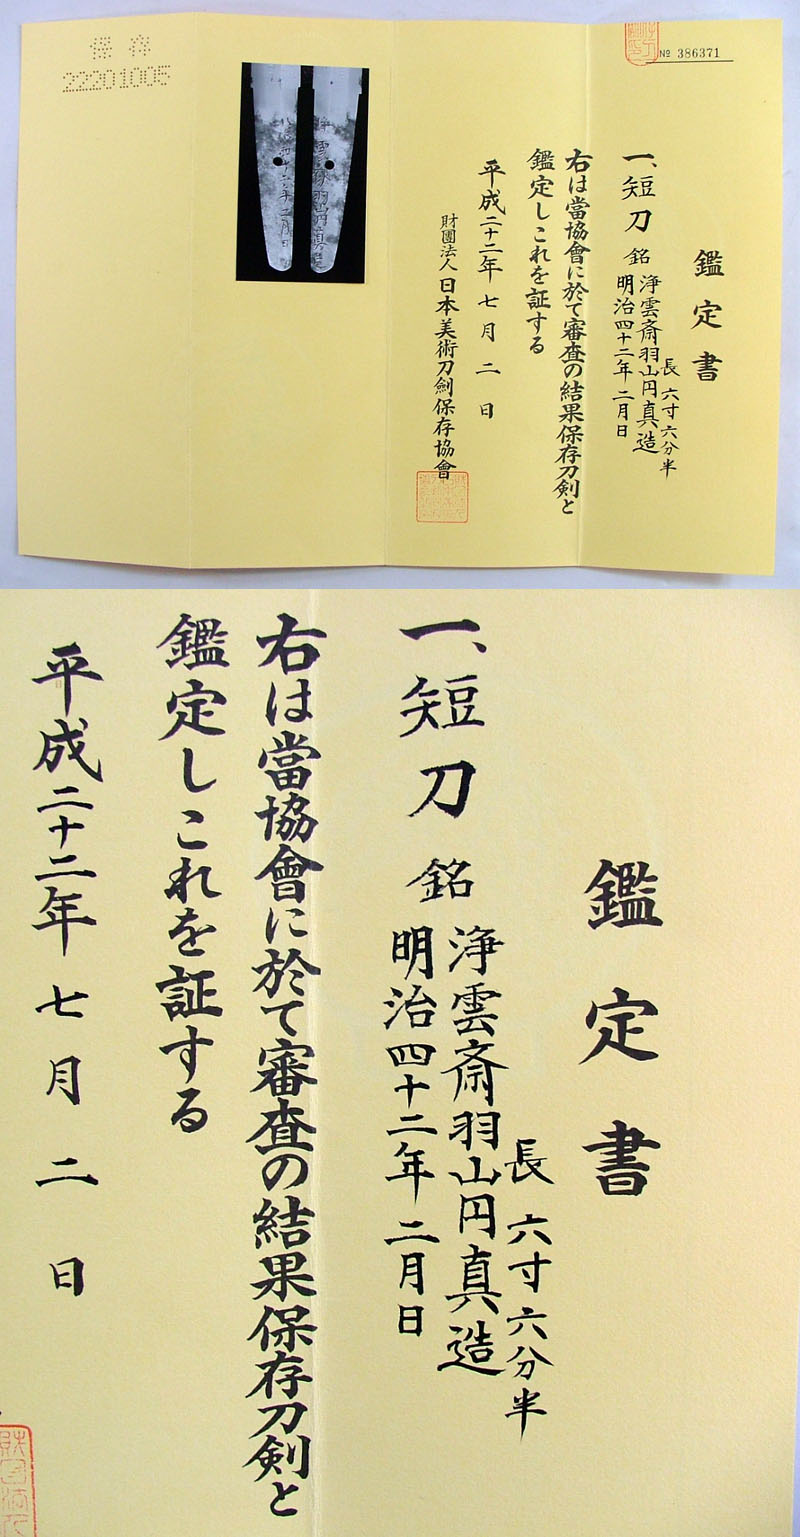 保存
22201005
№ 386371
鑑定書
一、短刀 銘 浄雲斎羽山円真造
明治四十二年二月日
長 六寸六分半
右は當協會に於て審査の結果保存刀剣と
鑑定しこれを証する
平成二十二年七月二日
財團法人日本美術刀劍保存協會
鑑定書
一、短刀 銘 浄雲斎羽山円真造
明治四十二年二月日
長 六寸六分半
右は當協會に於て審査の結果保存刀剣と
鑑定しこれを証する
平成二十二年七月二日